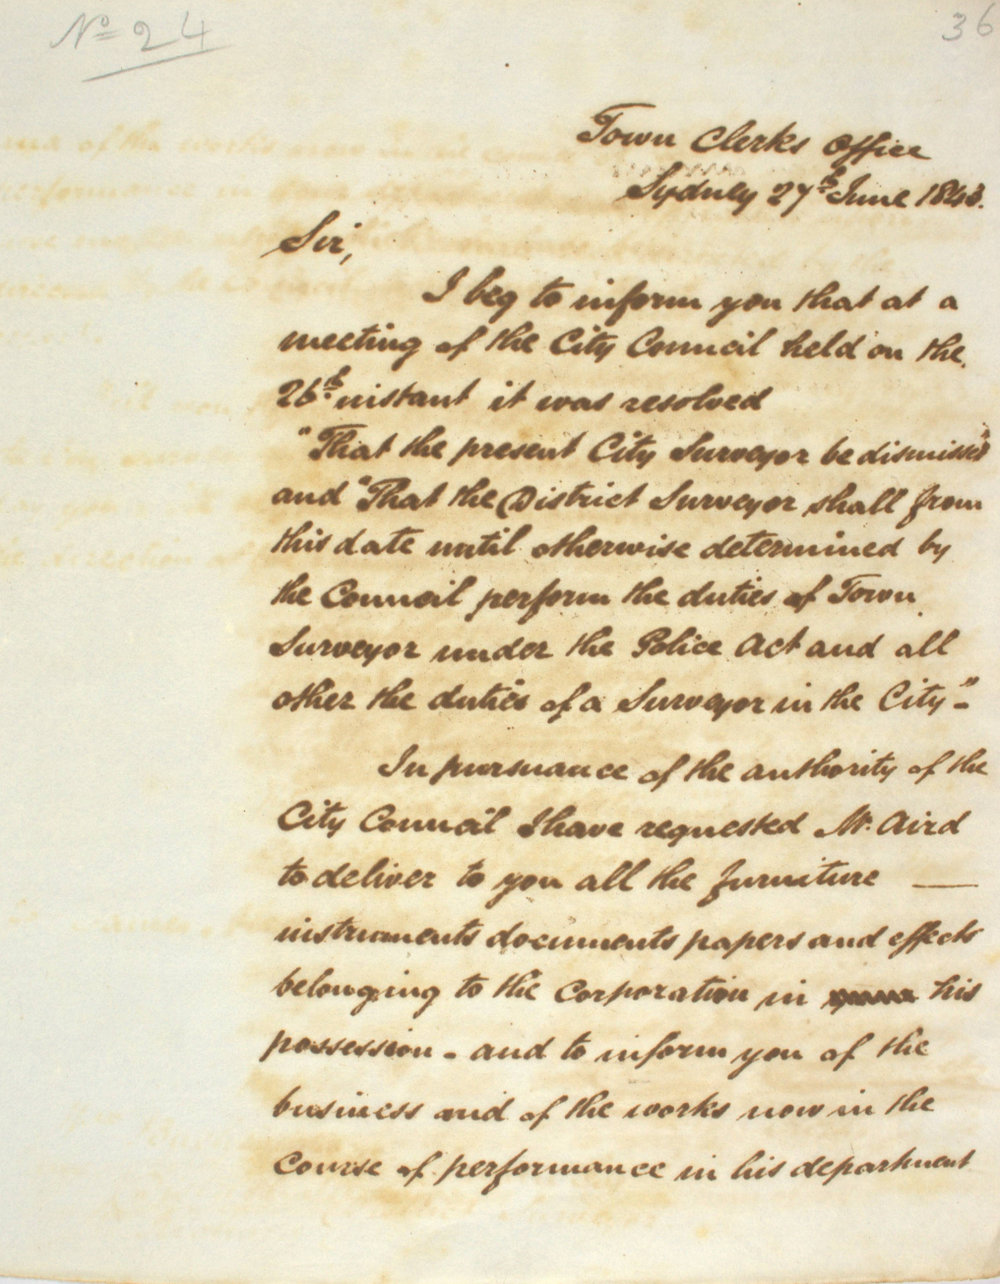 No 24
36
Town Clerks Office
Sydney 27th June 1843.
Sir,
I beg to inform you that at a
meeting of the City Council held on the
26th instant it was resolved
"That the present City Surveyor be dismissed
and "That the District Surveyor shall from
this date until otherwise determined by
the Council perform the duties of Town
Surveyor under the Police Act and all
other the duties of a Surveyor in the City"-
In pursuance of the authority of the
City Council I have requested Mr. Aird
to deliver to you all the furniture —
instruments documents papers and effects
belonging to the Corporation in his
possession - and to inform you of the
business and of the works now in the
course of performance in his department